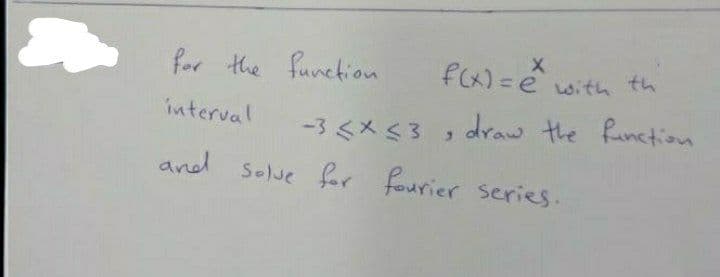 for the function f(x) = e^x with th
interval -3 ≤ x ≤ 3 , draw the function
and solve for fourier series.